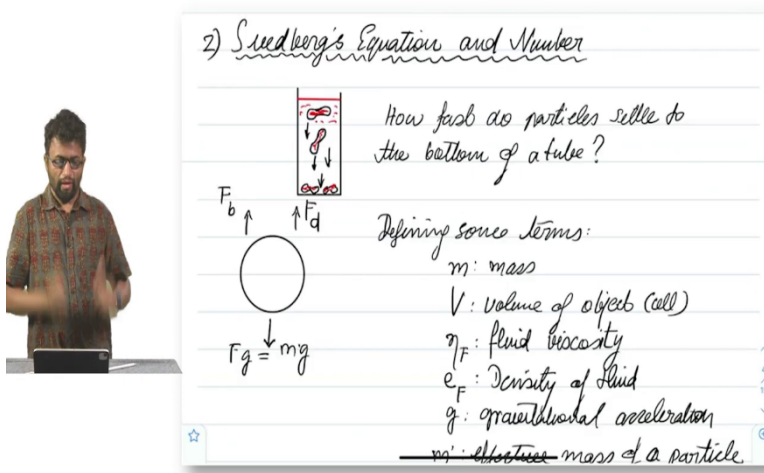 2) Svedberg's Equation and Number
How fast do particles settle to
the bottom of a tube?
Fb
Fd
Defining some terms:
m: mass
V: volume of object (cell)
Fg = mg
ηF: fluid viscosity
ρF: Density of fluid
g: gravitational acceleration
m: effective mass of a particle